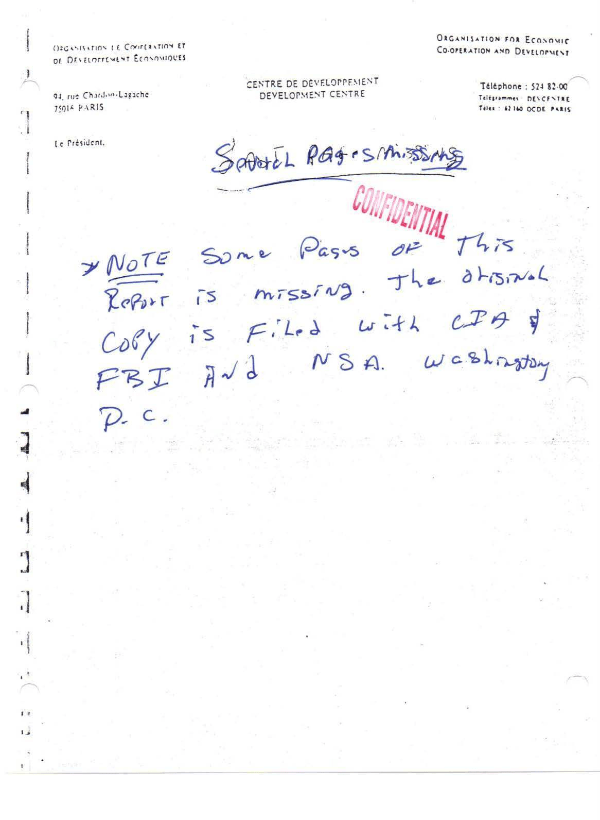 ORGANISATION DE COOPÉRATION ET
DE DÉVELOPPEMENT ÉCONOMIQUES
ORGANISATION FOR ECONOMIC
CO-OPERATION AND DEVELOPMENT
94, rue Chardon-Lagache
75016 PARIS
CENTRE DE DÉVELOPPEMENT
DEVELOPMENT CENTRE
Téléphone : 524 82-00
Télégrammes DEVCENTRE
Télex : 62 160 OCDE PARIS
Le Président,
Several Pages missing
CONFIDENTIAL
NOTE some Pages OF This
REPORT is missing. The original
COPY is Filed with CIA &
FBI And NSA. Washington
D.C.